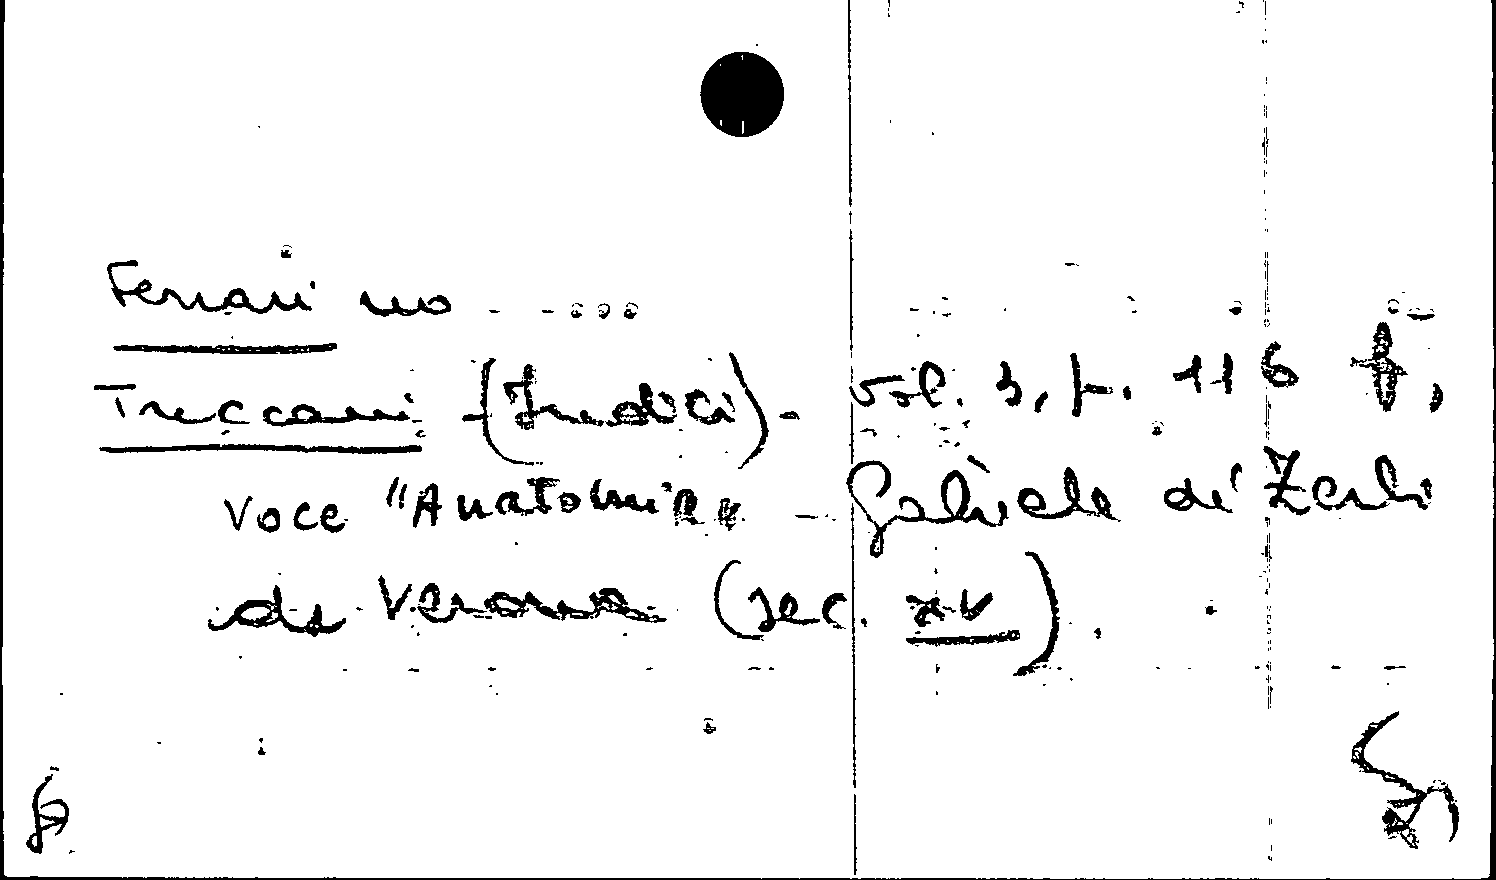 Ferrari no
Treccani - (Indici) - vol. 3, p. 116
voce "Anatomia" - Gabriele di Zerbi
da Verona (sec. XV).